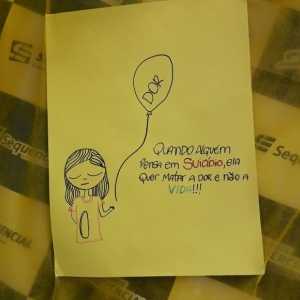 DOR
QUANDO ALGUÉM
PENSA EM SUICÍDIO, ELA
QUER MATAR A DOR E NÃO A
VIDA!!!
Sequencial
Sequencial